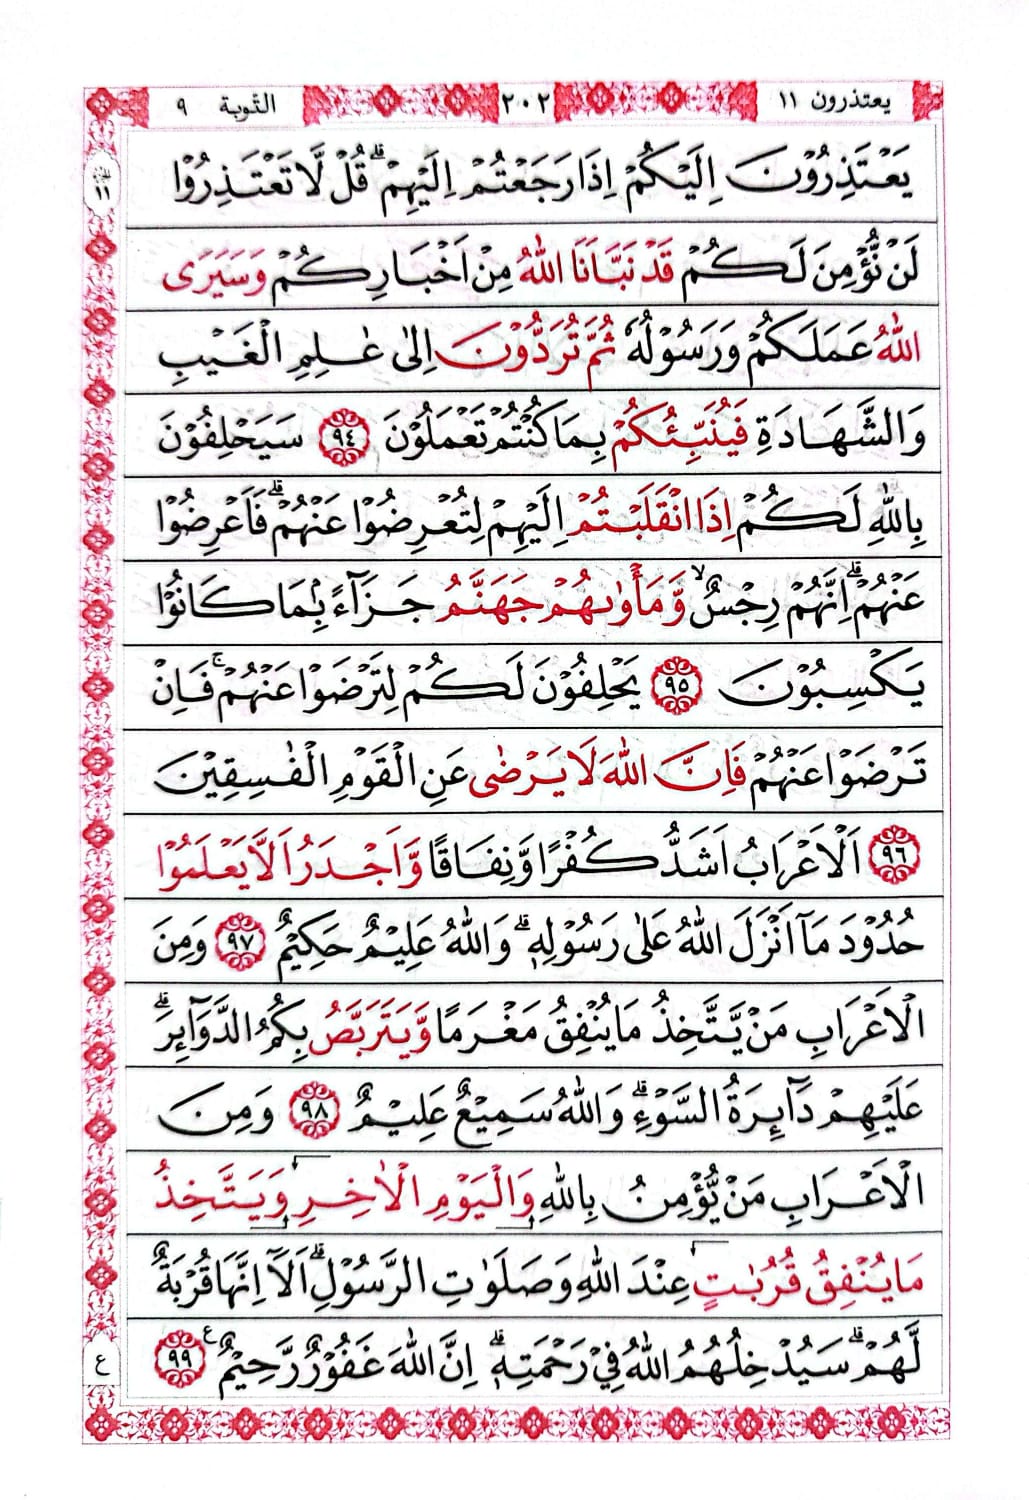 يعتذرون ١١ ٢٠٢ التوبة ٩
يَعْتَذِرُوْنَ اِلَيْكُمْ اِذَا رَجَعْتُمْ اِلَيْهِمْ ؕ قُلْ لَّا تَعْتَذِرُوْا
١١
لَنْ نُّؤْمِنَ لَكُمْ قَدْ نَبَّاَنَا اللّٰهُ مِنْ اَخْبَارِكُمْ وَسَيَرَى
اللّٰهُ عَمَلَكُمْ وَرَسُوْلُهٗ ثُمَّ تُرَدُّوْنَ اِلٰى عٰلِمِ الْغَيْبِ
وَالشَّهَادَةِ فَيُنَبِّئُكُمْ بِمَا كُنْتُمْ تَعْمَلُوْنَ ٩٤ سَيَحْلِفُوْنَ
بِاللّٰهِ لَكُمْ اِذَا انْقَلَبْتُمْ اِلَيْهِمْ لِتُعْرِضُوْا عَنْهُمْ ؕ فَاَعْرِضُوْا
عَنْهُمْ ؕ اِنَّهُمْ رِجْسٌ ۙ وَّمَاْوٰىهُمْ جَهَنَّمُ جَزَآءًۢ بِمَا كَانُوْا
يَكْسِبُوْنَ ٩٥ يَحْلِفُوْنَ لَكُمْ لِتَرْضَوْا عَنْهُمْ ۚ فَاِنْ
تَرْضَوْا عَنْهُمْ فَاِنَّ اللّٰهَ لَا يَرْضٰى عَنِ الْقَوْمِ الْفٰسِقِيْنَ
٩٦ اَلْاَعْرَابُ اَشَدُّ كُفْرًا وَّنِفَاقًا وَّاَجْدَرُ اَلَّا يَعْلَمُوْا
حُدُوْدَ مَاۤ اَنْزَلَ اللّٰهُ عَلٰى رَسُوْلِهٖ ؕ وَاللّٰهُ عَلِيْمٌ حَكِيْمٌ ٩٧ وَمِنَ
الْاَعْرَابِ مَنْ يَّتَّخِذُ مَا يُنْفِقُ مَغْرَمًا وَّيَتَرَبَّصُ بِكُمُ الدَّوَآئِرَ ؕ
عَلَيْهِمْ دَآئِرَةُ السَّوْءِ ؕ وَاللّٰهُ سَمِيْعٌ عَلِيْمٌ ٩٨ وَمِنَ
الْاَعْرَابِ مَنْ يُّؤْمِنُ بِاللّٰهِ وَالْيَوْمِ الْاٰخِرِ وَيَتَّخِذُ
مَا يُنْفِقُ قُرُبٰتٍ عِنْدَ اللّٰهِ وَصَلَوٰتِ الرَّسُوْلِ ؕ اَلَاۤ اِنَّهَا قُرْبَةٌ
لَّهُمْ ؕ سَيُدْخِلُهُمُ اللّٰهُ فِيْ رَحْمَتِهٖ ؕ اِنَّ اللّٰهَ غَفُوْرٌ رَّحِيْمٌ ع ٩٩
ع